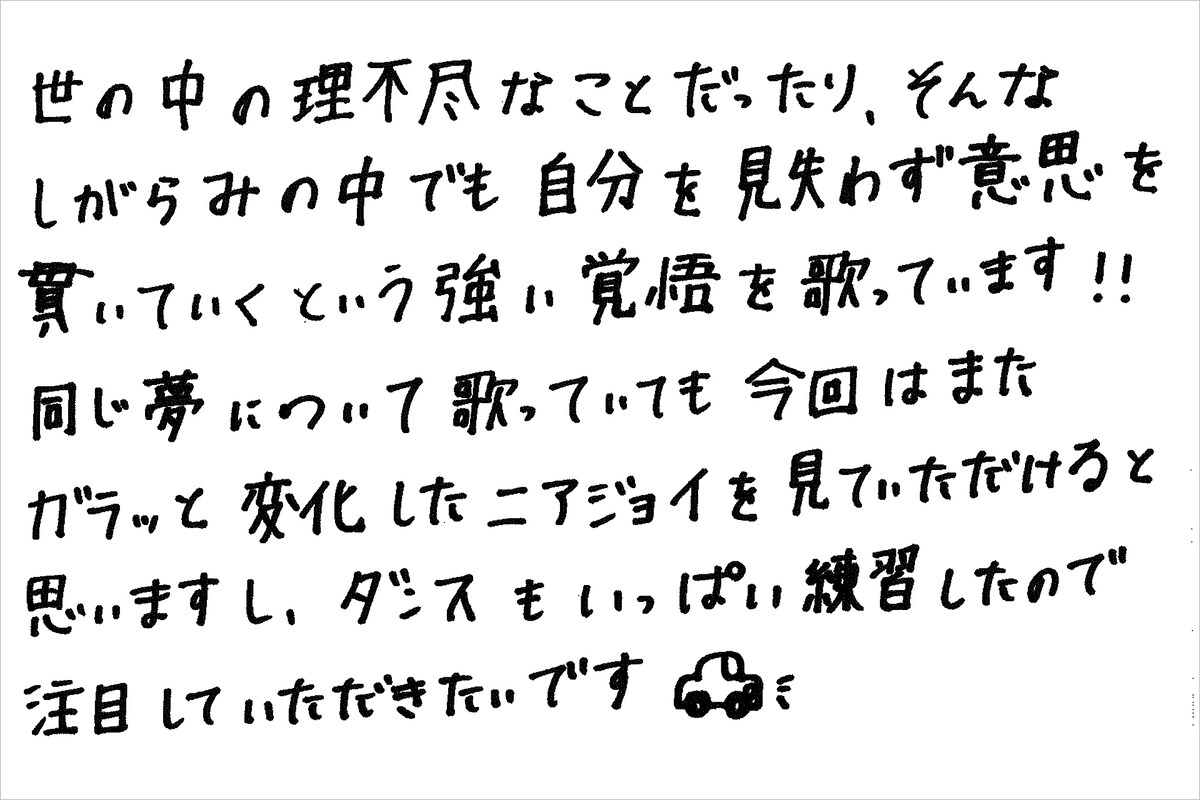 世の中の理不尽なことだったり、そんな
しがらみの中でも自分を見失わず意思を
貫いていくという強い覚悟を歌っています!!
同じ夢について歌っていても今回はまた
ガラッと変化したニアジョイを見ていただけると
思いますし、ダンスもいっぱい練習したので
注目していただきたいです